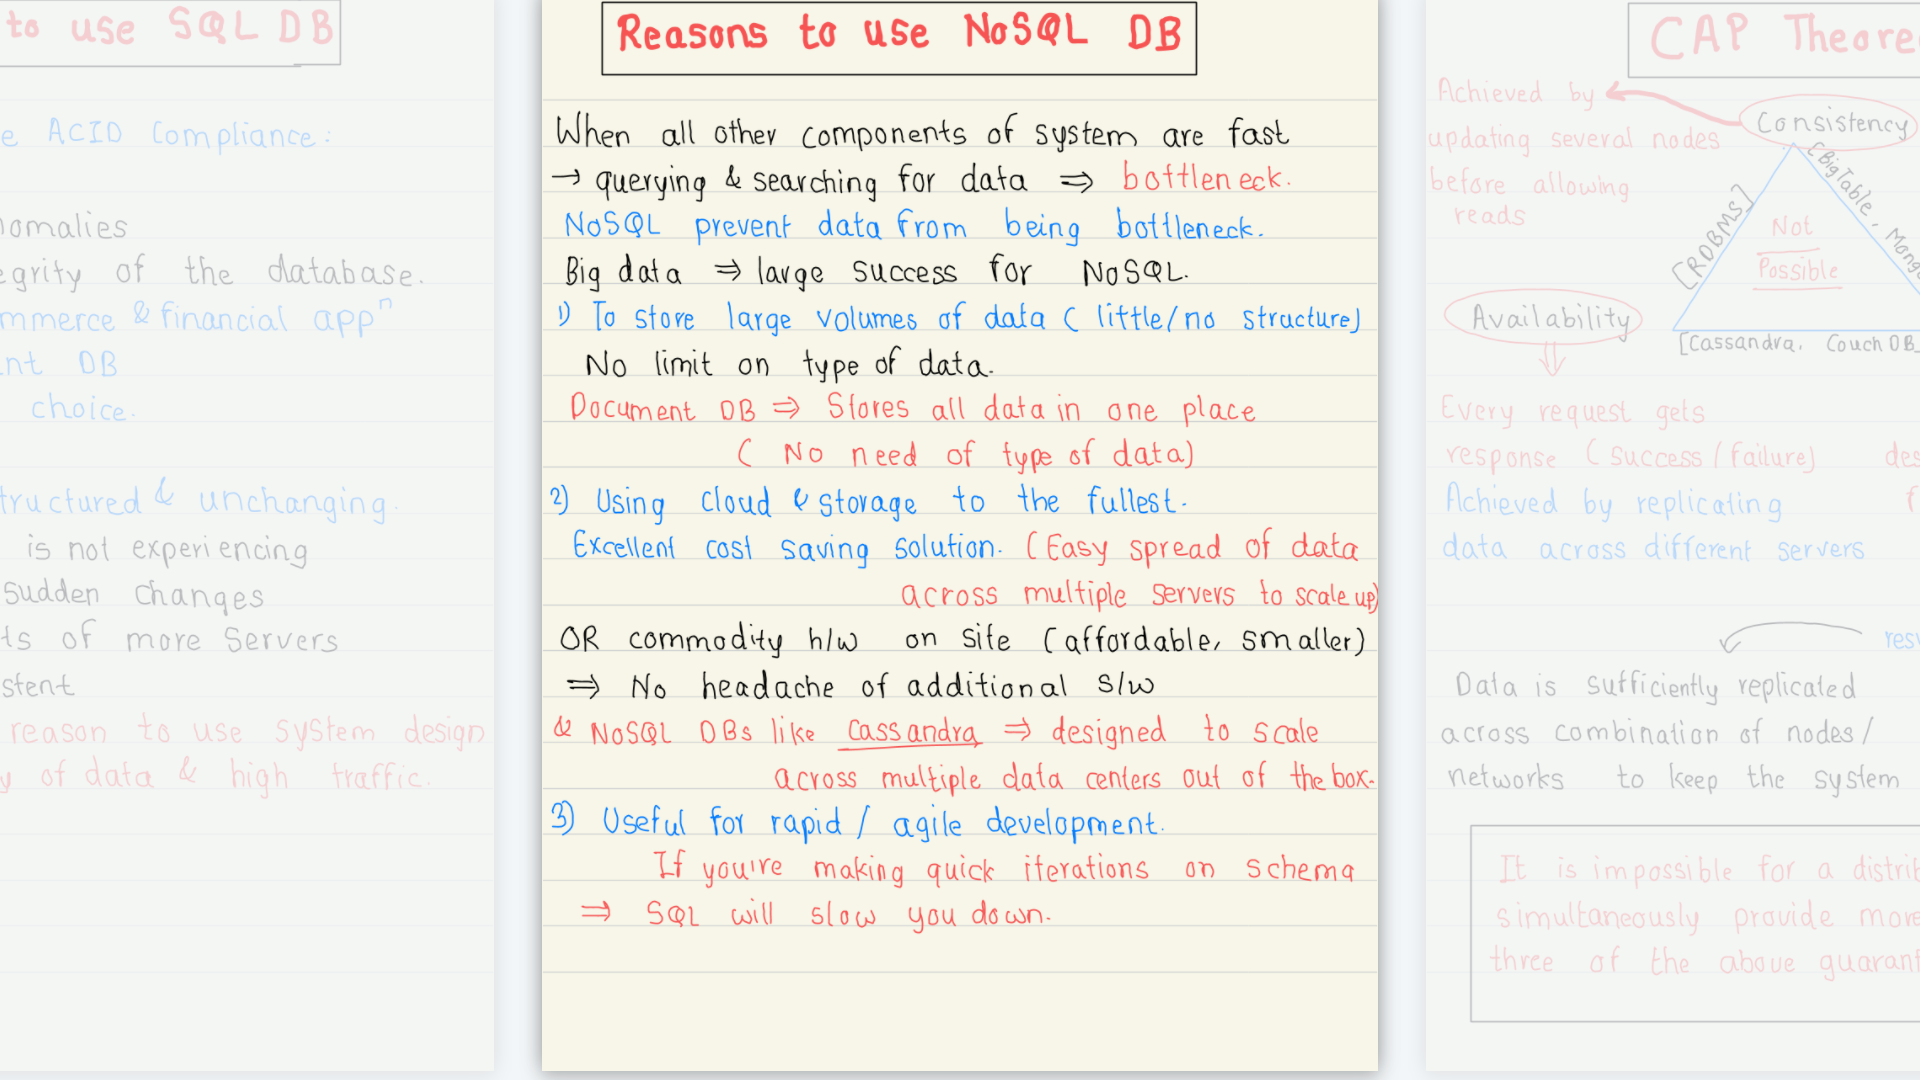 to use SQL DB
ACID Compliance:
of the database.
& financial appⁿ
DB
choice.
& unchanging.
is not experiencing
sudden changes
of more servers
reason to use system design
of data & high traffic.
Reasons to use NoSQL DB
When all other components of system are fast
→ querying & searching for data ⇒ bottleneck.
NoSQL prevent data from being bottleneck.
Big data ⇒ large success for NoSQL.
1) To store large volumes of data ( little/no structure)
No limit on type of data.
Document DB ⇒ Stores all data in one place
( No need of type of data)
2) Using cloud & storage to the fullest.
Excellent cost saving solution. (Easy spread of data
across multiple servers to scale up)
OR commodity h/w on site (affordable, smaller)
⇒ No headache of additional s/w
& NoSQL DBs like Cassandra ⇒ designed to scale
across multiple data centers out of the box.
3) Useful for rapid / agile development.
If you're making quick iterations on schema
⇒ SQL will slow you down.
CAP
Achieved by
updating several nodes
before allowing
reads
Consistency
[BigTable,
[RDBMS]
Not
Possible
Availability
[Cassandra, CouchDB
Every request gets
response (success/failure)
Achieved by replicating
data across different servers
Data is sufficiently replicated
across combination of nodes/
networks to keep the system
It is impossible for a
simultaneously provide
three of the above